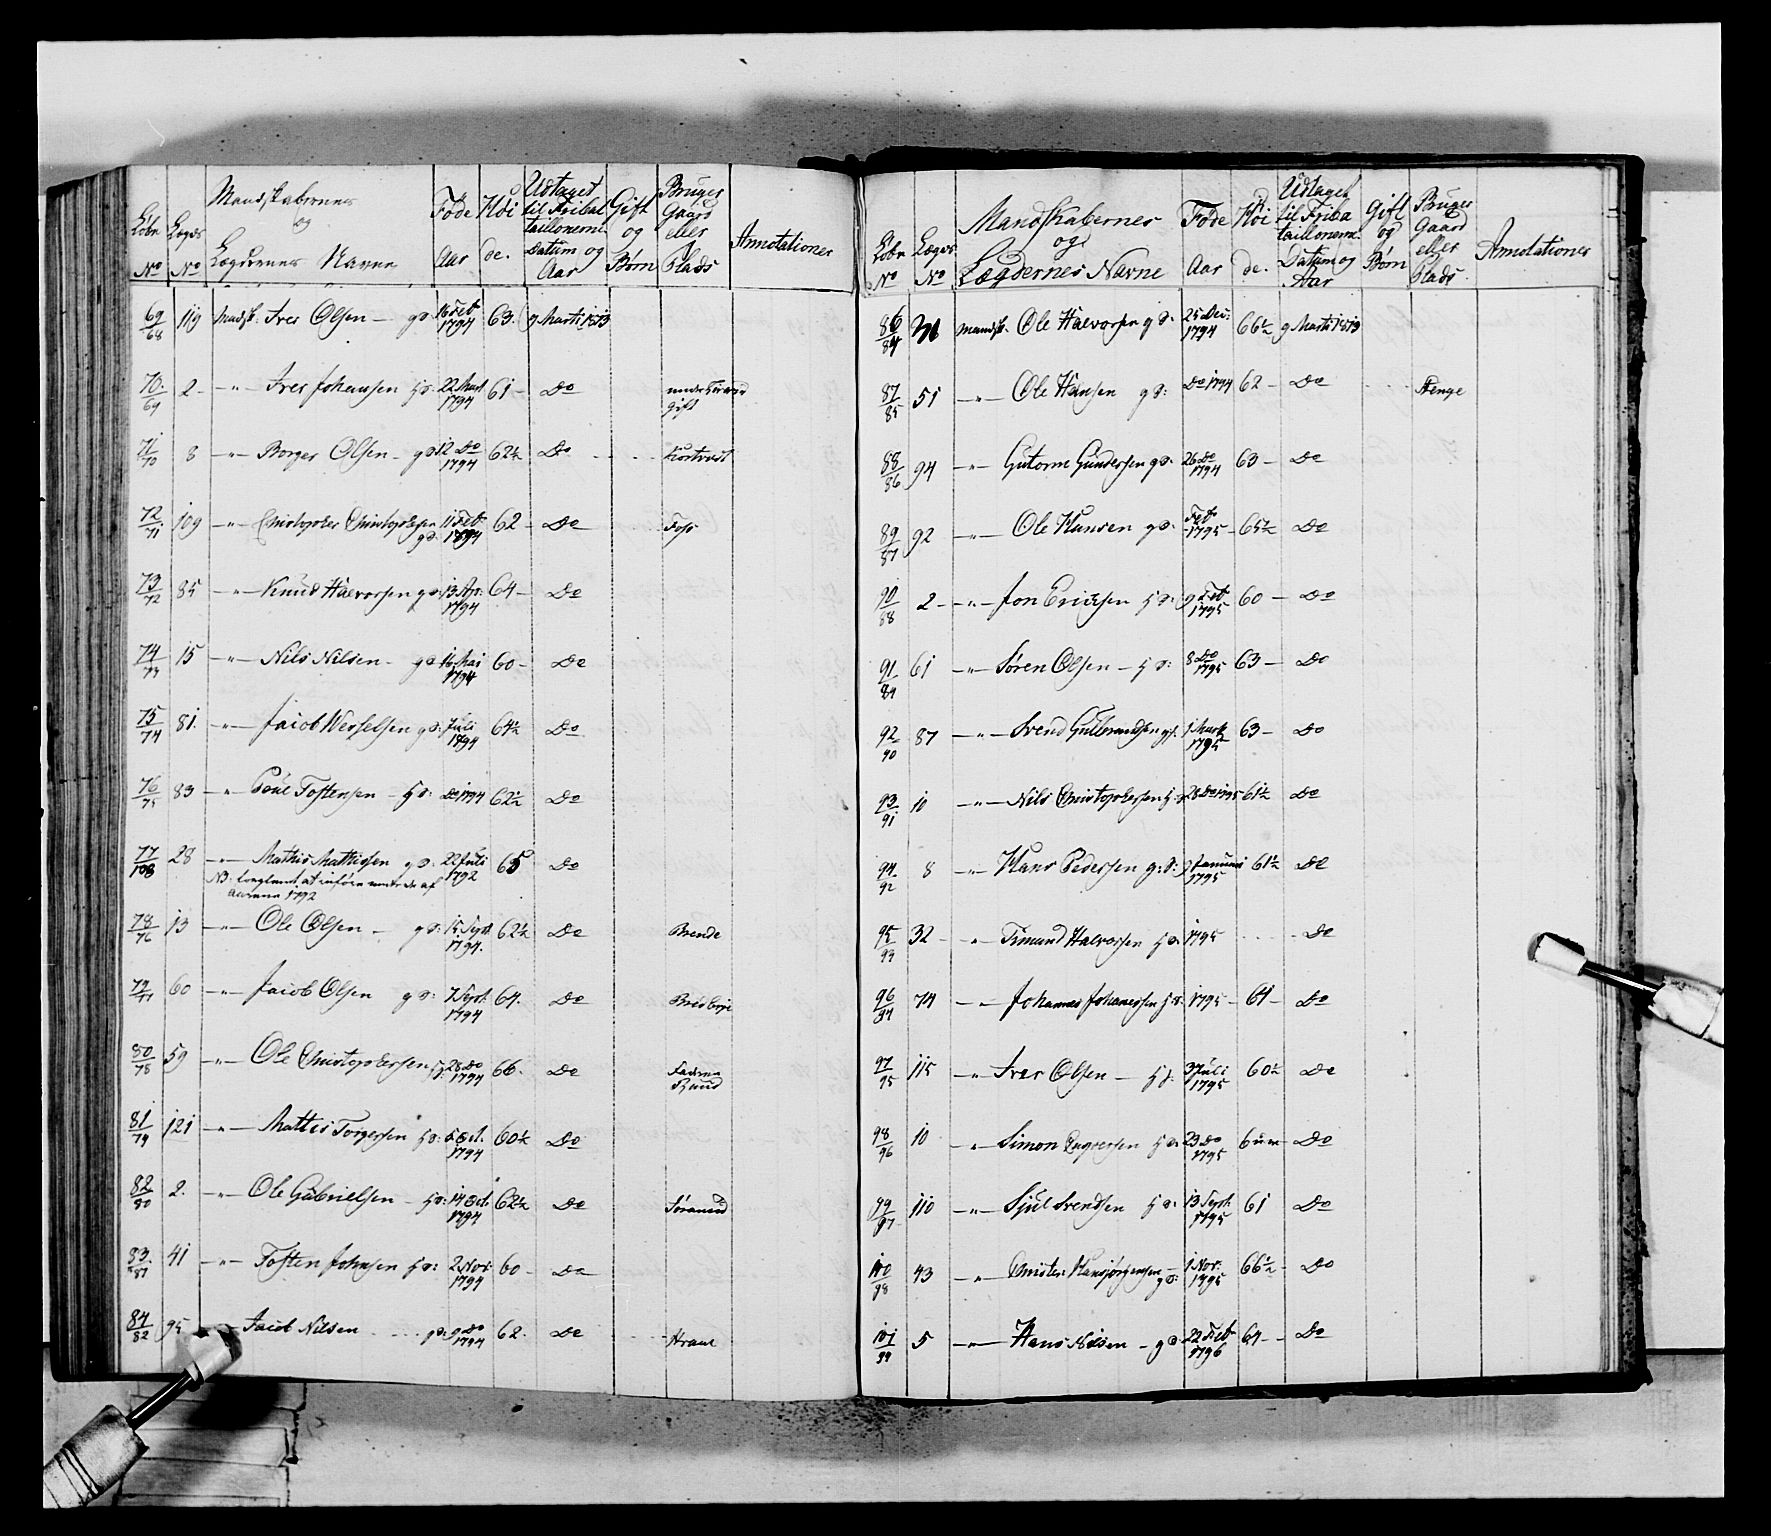 Mandskabernes
og
Lægdernes Navne
Løbe No
Lægds No
Føde Aar
Høide.
Udtaget til Fribataillonerne Datum og Aar
Gift og Børn
Bruger Gaard eller Plads
Annotationer
69/68 119 Mandsk: Iver Olsen — g d: 16 Feb 1794 63. 9 Marti 1813
70/69 2 – " – Iver Johansen h d: 22 Mart 1794 61 – Do Gift
71/70 8 – " – Borger Olsen – g d 12 Do 1794 62½ Do
72/71 109 – " – Christopher Christophersen g d: 11 Feb 1794 62 – Do Foss
73/72 85 – " – Knud Halvorsen g d: 13 Apr: 1794 64 – Do
74/73 15 – " – Nils Nilsen – g d 16 Mai 1794 60 – Do
75/74 81. – " – Jacob Wesselsen g d: Juli 1794 64½ Do
76/75 83 – " – Poul Tostensen – h d: Do 1794 62½ Do
77/108 28 – " – Mathis Mathissen g d: 22 Juli 1792 65 Do
NB: af
Aarene 1792
78/76 13 – " – Ole Olsen – g d: 15 Sept 1794. 62½ Do Brende
79/77 60 – " – Jacob Olsen g d: 7 Sept: 1794 64. Do
80/78 59 – " – Ole Christophersen 28 Do 1794 66. Do
81/79 121 – " – Mattis Torgersen h d: 1794 60½ Do
82/80 2. – " – Ole Gabrielsen – h d: 14 Oct. 1794 62½ Do
83/81 41 – " – Tosten Johnsen h d: 2 Nov: 1794 60 – Do
84/82 95 Jacob Nilsen g d: 9 Do 1794 62. Do
Mandskabernes
og
Lægdernes Navne
Løbe No
Lægds No
Føde Aar
Høide.
Udtaget til Friba taillonerne. Datum og Aar
Gift og Børn
Bruger Gaard eller Plads.
Annotationer
86/84 Mandsk. Ole Halvorsen g d: 25 Dec: 1794 66½ 9 Marti 1813
87/85 51 – " – Ole Hansen g d: Do 1794 62 – Do Stenge
88/86 94 – " – Gutorm Gundersen g d. 26 Do 1794 63 – Do
89/87 92 – " – Ole Hansen g d. Feb 1795 – 65½ Do
90/88 2 – " – Jon Ericksen h d: 9 Feb 1795 60 – Do
91/89 61 – " – Søren Olsen – h d: 8 Do 1795 63 – Do
92/90 87 – " – Svend Gulbrandsen 1 Marts 1795 63 – Do
93/91 10 – " – Nils Christophersen h d 28 Do 1795 61½ Do
94/92 8 – " – Hans Pedersen g: d: 9 Januari 1795 61½ Do
95/93 32 – " – Halvorsen h d: 1795 Do
96/94 74 – " – Johannes Johanessen h d: 1795 – 61 – Do
97/95 115 – " – Iver Olsen – h d: 3 Juli 1795 60½ Do
98/96 10 – " – Simon h d: 23 Do 1795 Do
99/97 110 – " – Sjul Svendsen h d: 13 Sept: 1795 61 Do
100/98 43 – " – Christe: Hansjørgensen – g d: 1 Nov: 1795 66½ – Do
101/99 5 – " – Hans Nilsen – g d 22 Feb 1796 64 – Do